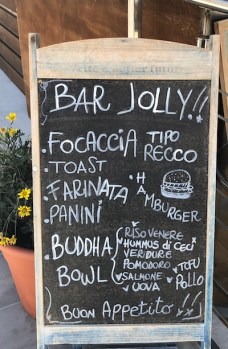 BAR JOLLY!!
FOCACCIA TIPO RECCO
.TOAST
.FARINATA
.PANINI
.HAMBURGER
.BUDDHA BOWL
RISO VENERE
HUMMUS di CECI
VERDURE
POMODORO
SALMONE
UOVA
TOFU
POLLO
BUON APPETITO!!